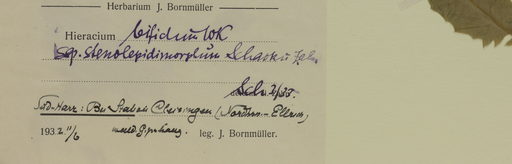 Herbarium J. Bornmüller
Hieracium bifidum WK
ssp. stenolepidimorphum Schack u. Zahn
Sch. 2/33.
Süd-Harz: Bei Stabat (Nordhsn. - Ellrich)
1932 11/6 leg. J. Bornmüller.